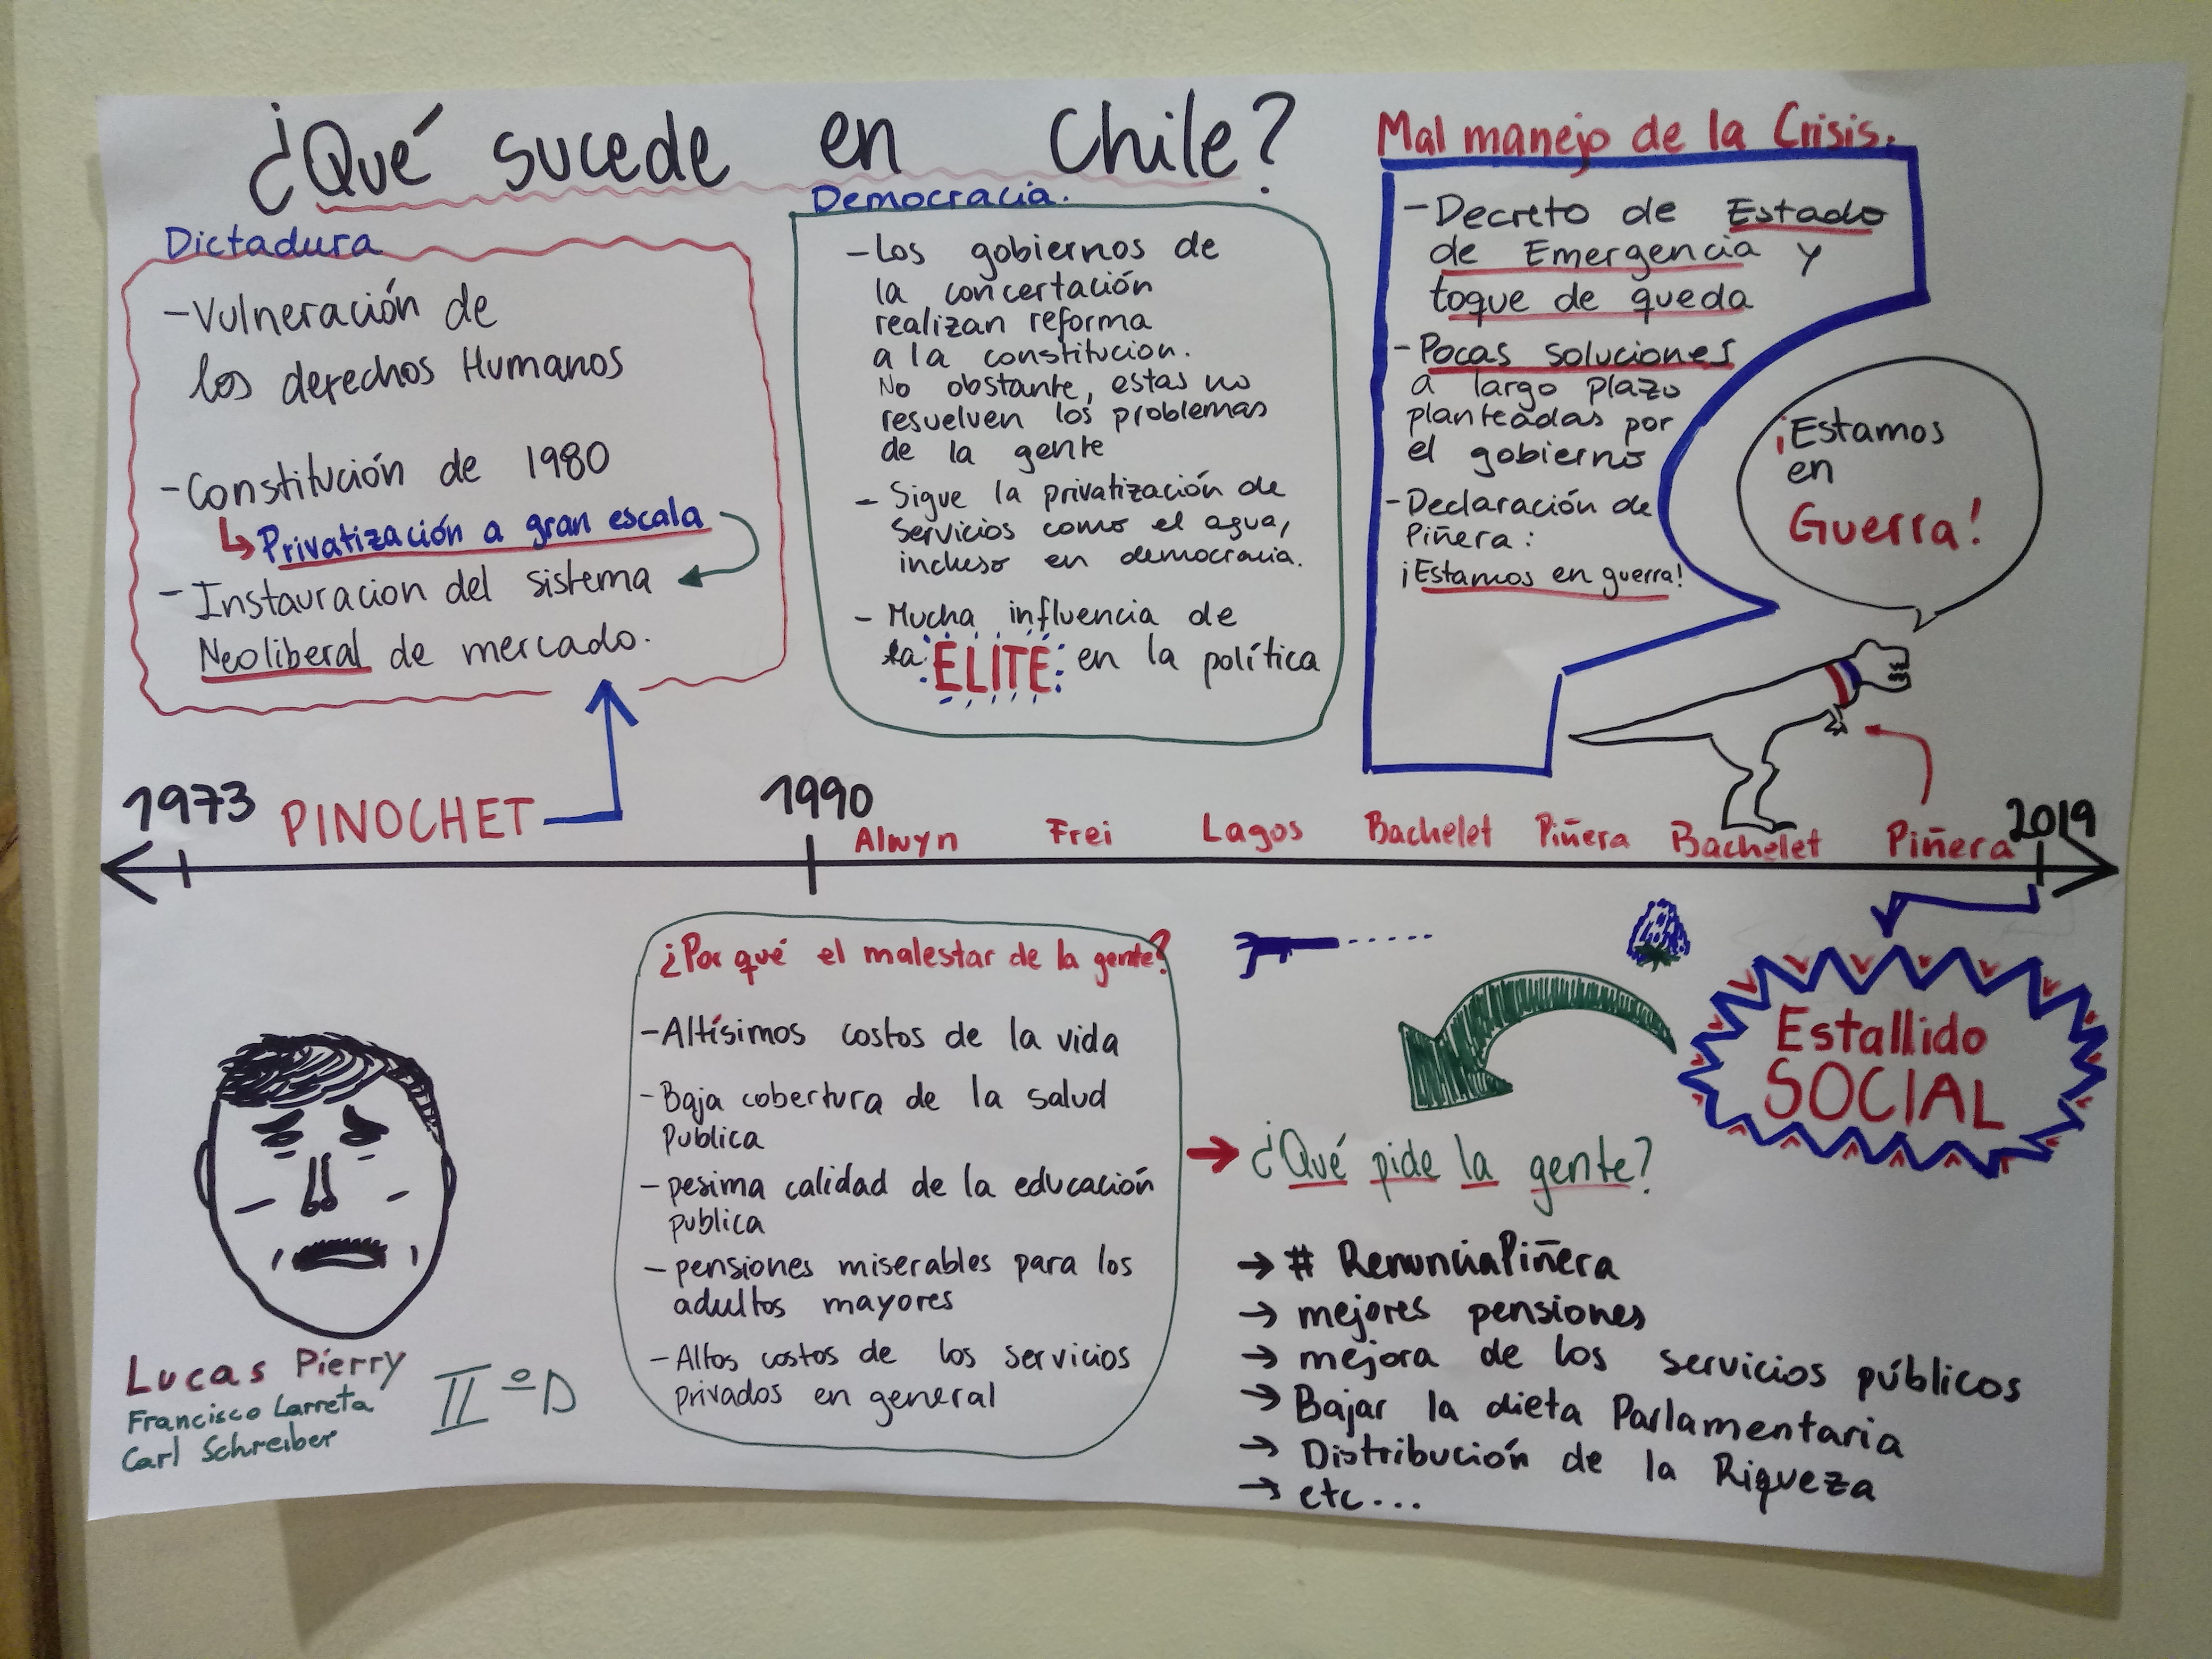 ¿Qué sucede en Chile?
Dictadura
-Vulneración de
los derechos Humanos
-Constitución de 1980
Privatización a gran escala
-Instauracion del sistema
Neoliberal de mercado.
Democracia.
-Los gobiernos de
la concertación
realizan reforma
a la constitucion.
No obstante, estas no
resuelven los problemas
de la gente
- Sigue la privatización de
servicios como el agua,
incluso en democracia.
- Mucha influencia de
la ELITE en la política
Mal manejo de la Crisis.
-Decreto de Estado
de Emergencia y
toque de queda
-Pocas soluciones
a largo plazo
planteadas por
el gobierno
-Declaración de
Piñera:
¡Estamos en guerra!
¡Estamos
en
Guerra!
1973 PINOCHET 1990 Alwyn Frei Lagos Bachelet Piñera Bachelet Piñera 2019
¿Por qué el malestar de la gente?
-Altísimos costos de la vida
-Baja cobertura de la salud
Publica
-pesima calidad de la educación
publica
-pensiones miserables para los
adultos mayores
-Altos costos de los servicios
privados en general
Estallido
SOCIAL
→ ¿Qué pide la gente?
→ # RenunciaPiñera
→ mejores pensiones
→ mejora de los servicios públicos
→ Bajar la dieta Parlamentaria
→ Distribución de la Riqueza
→ etc...
Lucas Pierry
Francisco Larreta
Carl Schreiber
IIºD